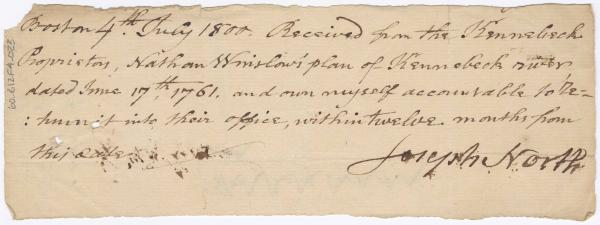 Boston 4th July 1800. Received from the Kennebeck
Proprietors, Nathan Winslow's plan of Kennebeck river
dated June 17th 1761. and own myself accountable to re=
:turn it into their office, within twelve months from
this date
Joseph North